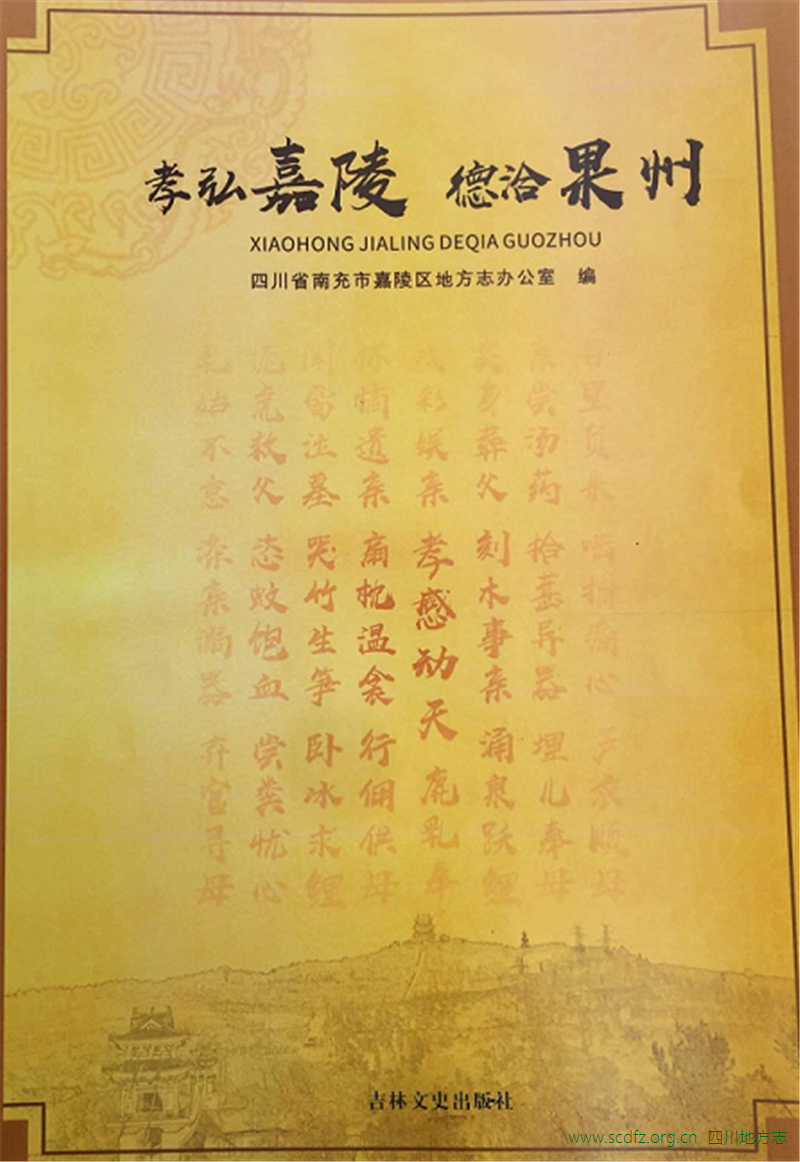 孝弘嘉陵 德洽果州
XIAOHONG JIALING DEQIA GUOZHOU
四川省南充市嘉陵区地方志办公室 编
百里负米 啮指痛心 芦衣顺母
亲尝汤药 拾葚异器 埋儿奉母
卖身葬父 刻木事亲 涌泉跃鲤
戏彩娱亲 孝感动天 鹿乳奉
怀橘遗亲 扇枕温衾 行佣供母
闻雷泣墓 哭竹生笋 卧冰求鲤
扼虎救父 恣蚊饱血 尝粪忧心
乳姑不怠 涤亲溺器 弃官寻母
吉林文史出版社
www.scdfz.org.cn 四川地方志